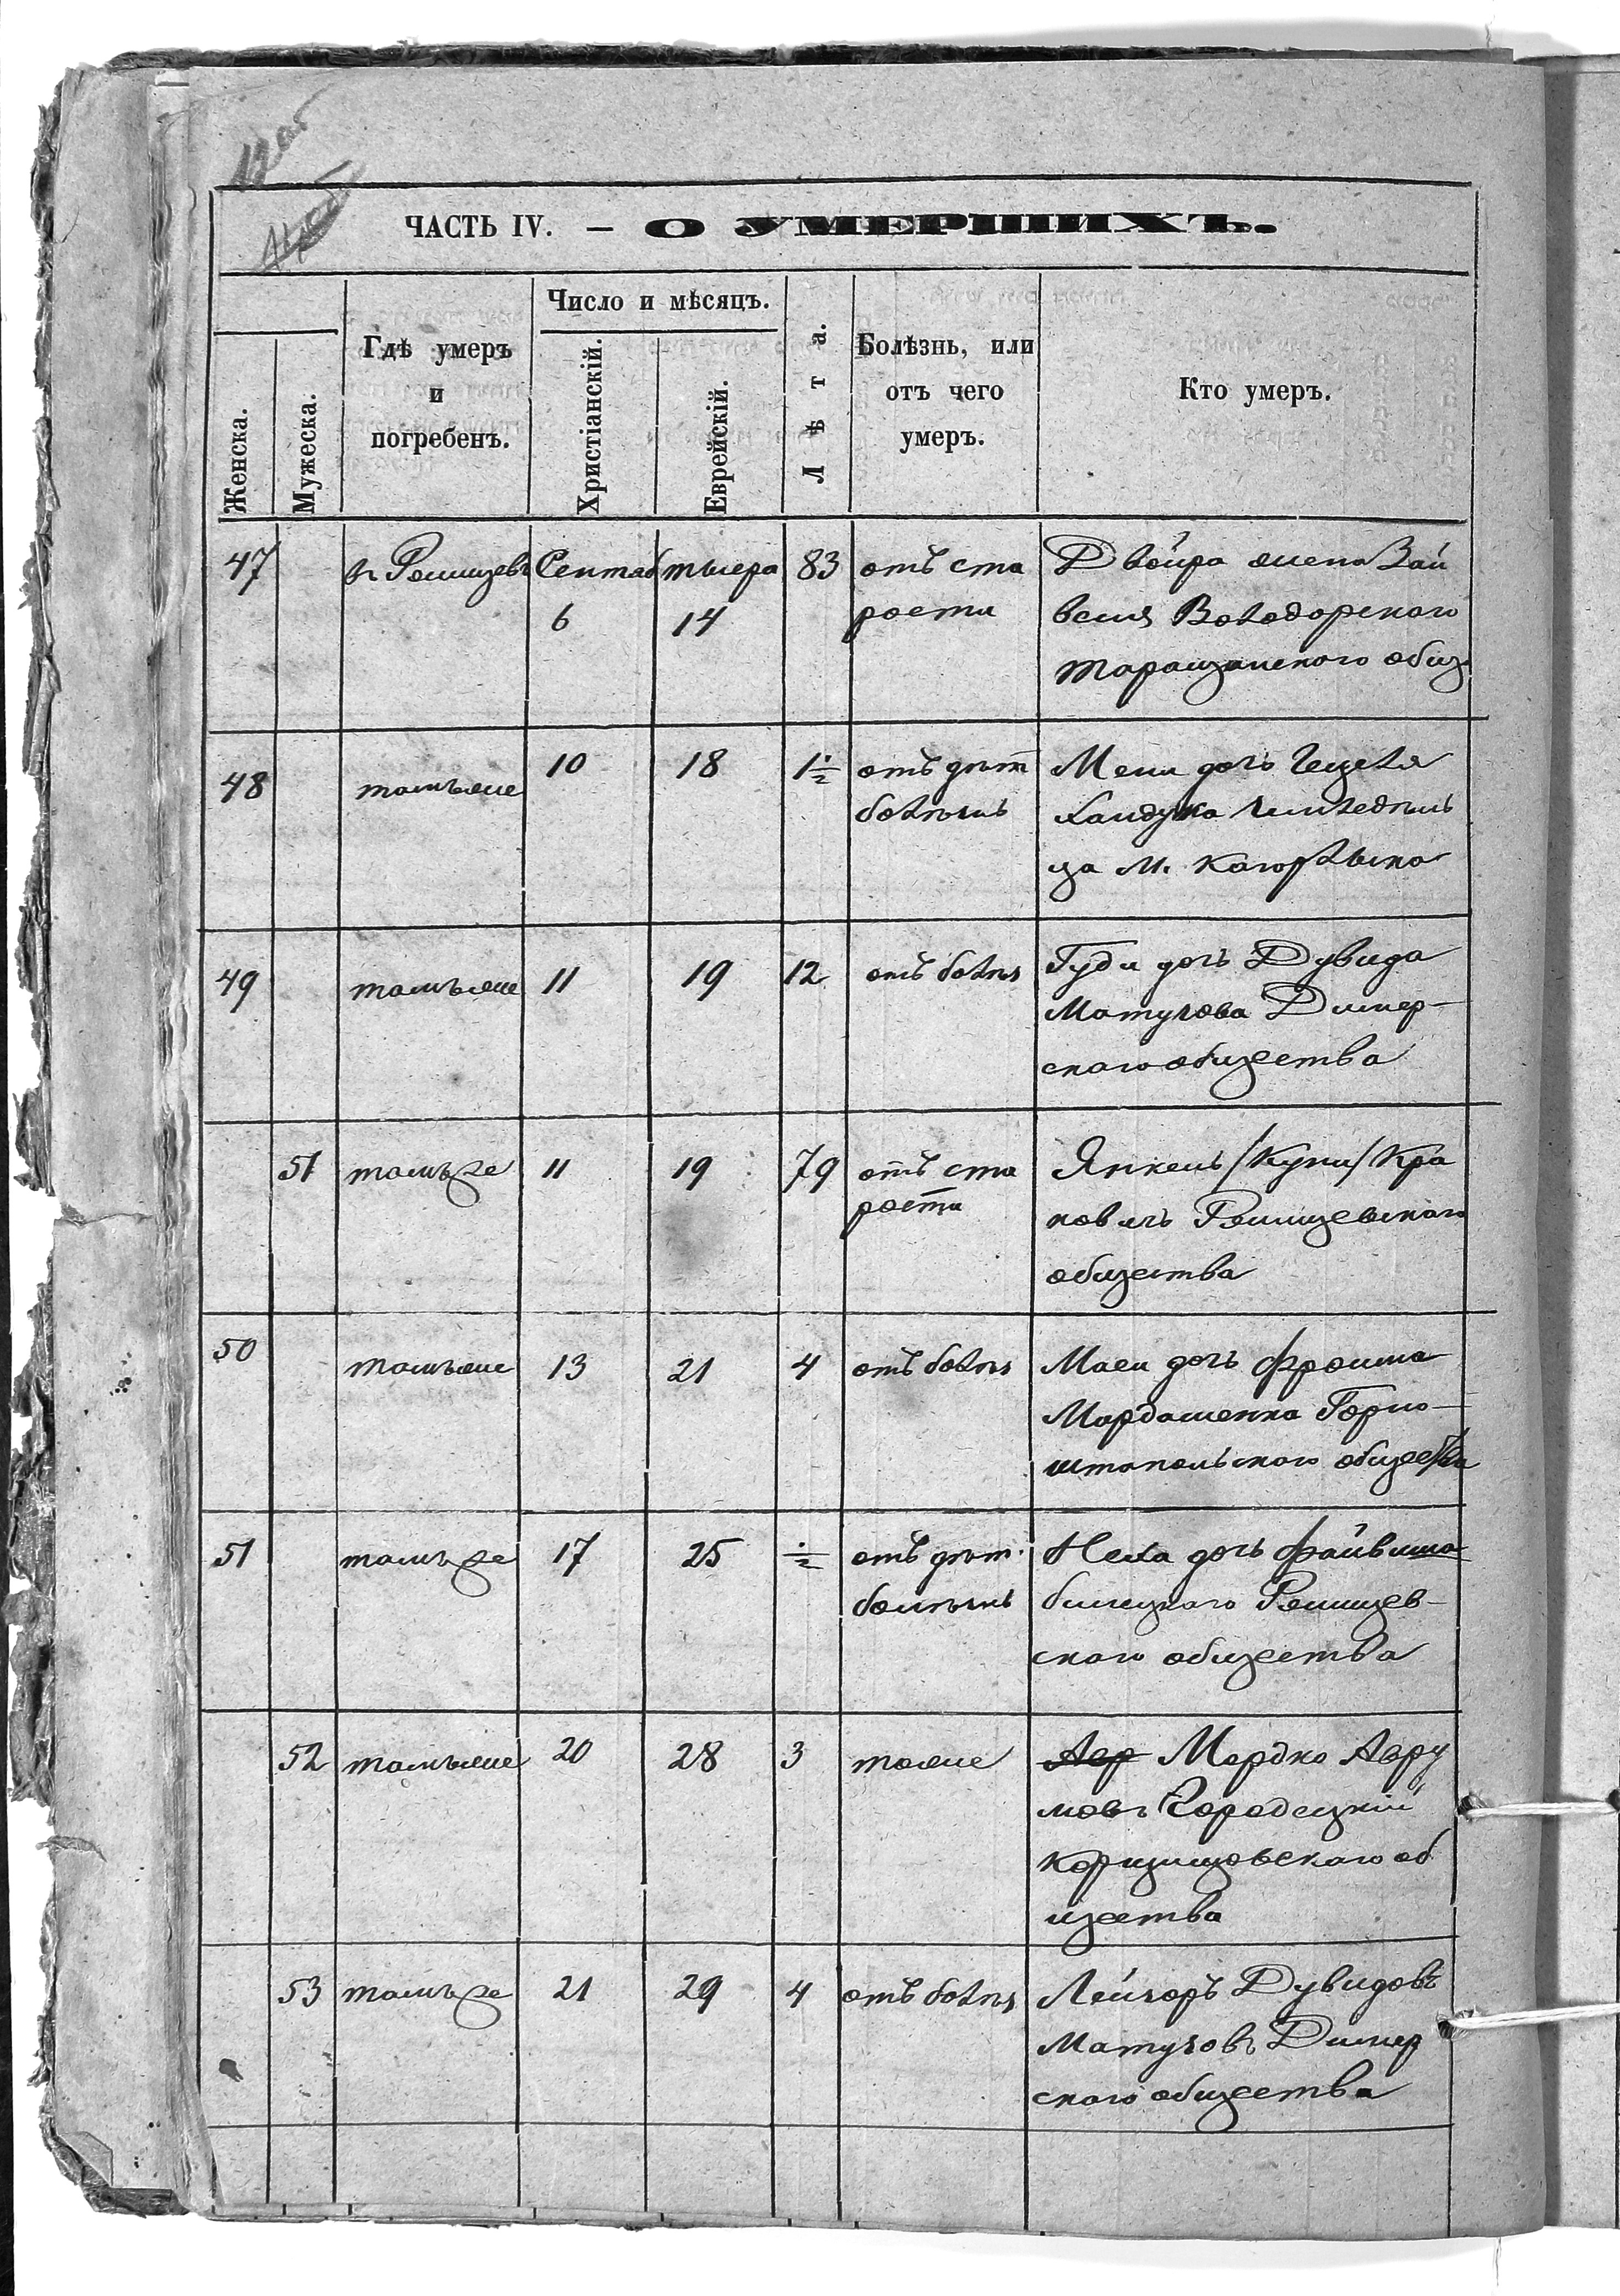 12 об
ЧАСТЬ IV. — О УМЕРШИХЪ.
Женска.
Мужеска.
Гдѣ умеръ
и
погребенъ.
Число и мѣсяцъ.
Христіанскій.
Еврейскій.
Лѣта.
Болѣзнь, или
отъ чего
умеръ.
Кто умеръ.
47 в. Ржищевѣ Сентяб тишра 83 отъ ста Двойра жена Зай
6 14 рости веля Володорского
таращанского общ
48 тамъже 10 18 1½ отъ дѣт Мени дочь Гецеля
болѣзнь
за м. Кагорлыка
49 тамъже 11 19 12 отъ болѣз Гуди дочь Дувида
Матусова Димер-
ского общества
51 тамъже 11 19 79 отъ ста Янкель /Куни/ Кра
рости кович Ржищевского
общества
50 тамъже 13 21 4 отъ болѣз дочь Фроима
Мордашенка Горно-
штапольского общества
51 тамъже 17 25 ½ отъ дѣт. дочь Файвиша
болѣзнь Ржищев-
ского общества
52 тамъже 20 28 3 тоже Авр Мордко Авру
мовъ Городецкій
об
щества
53 тамъже 21 29 4 отъ болѣз Лейзоръ Дувидовъ
Матусовъ Димер
ского общества